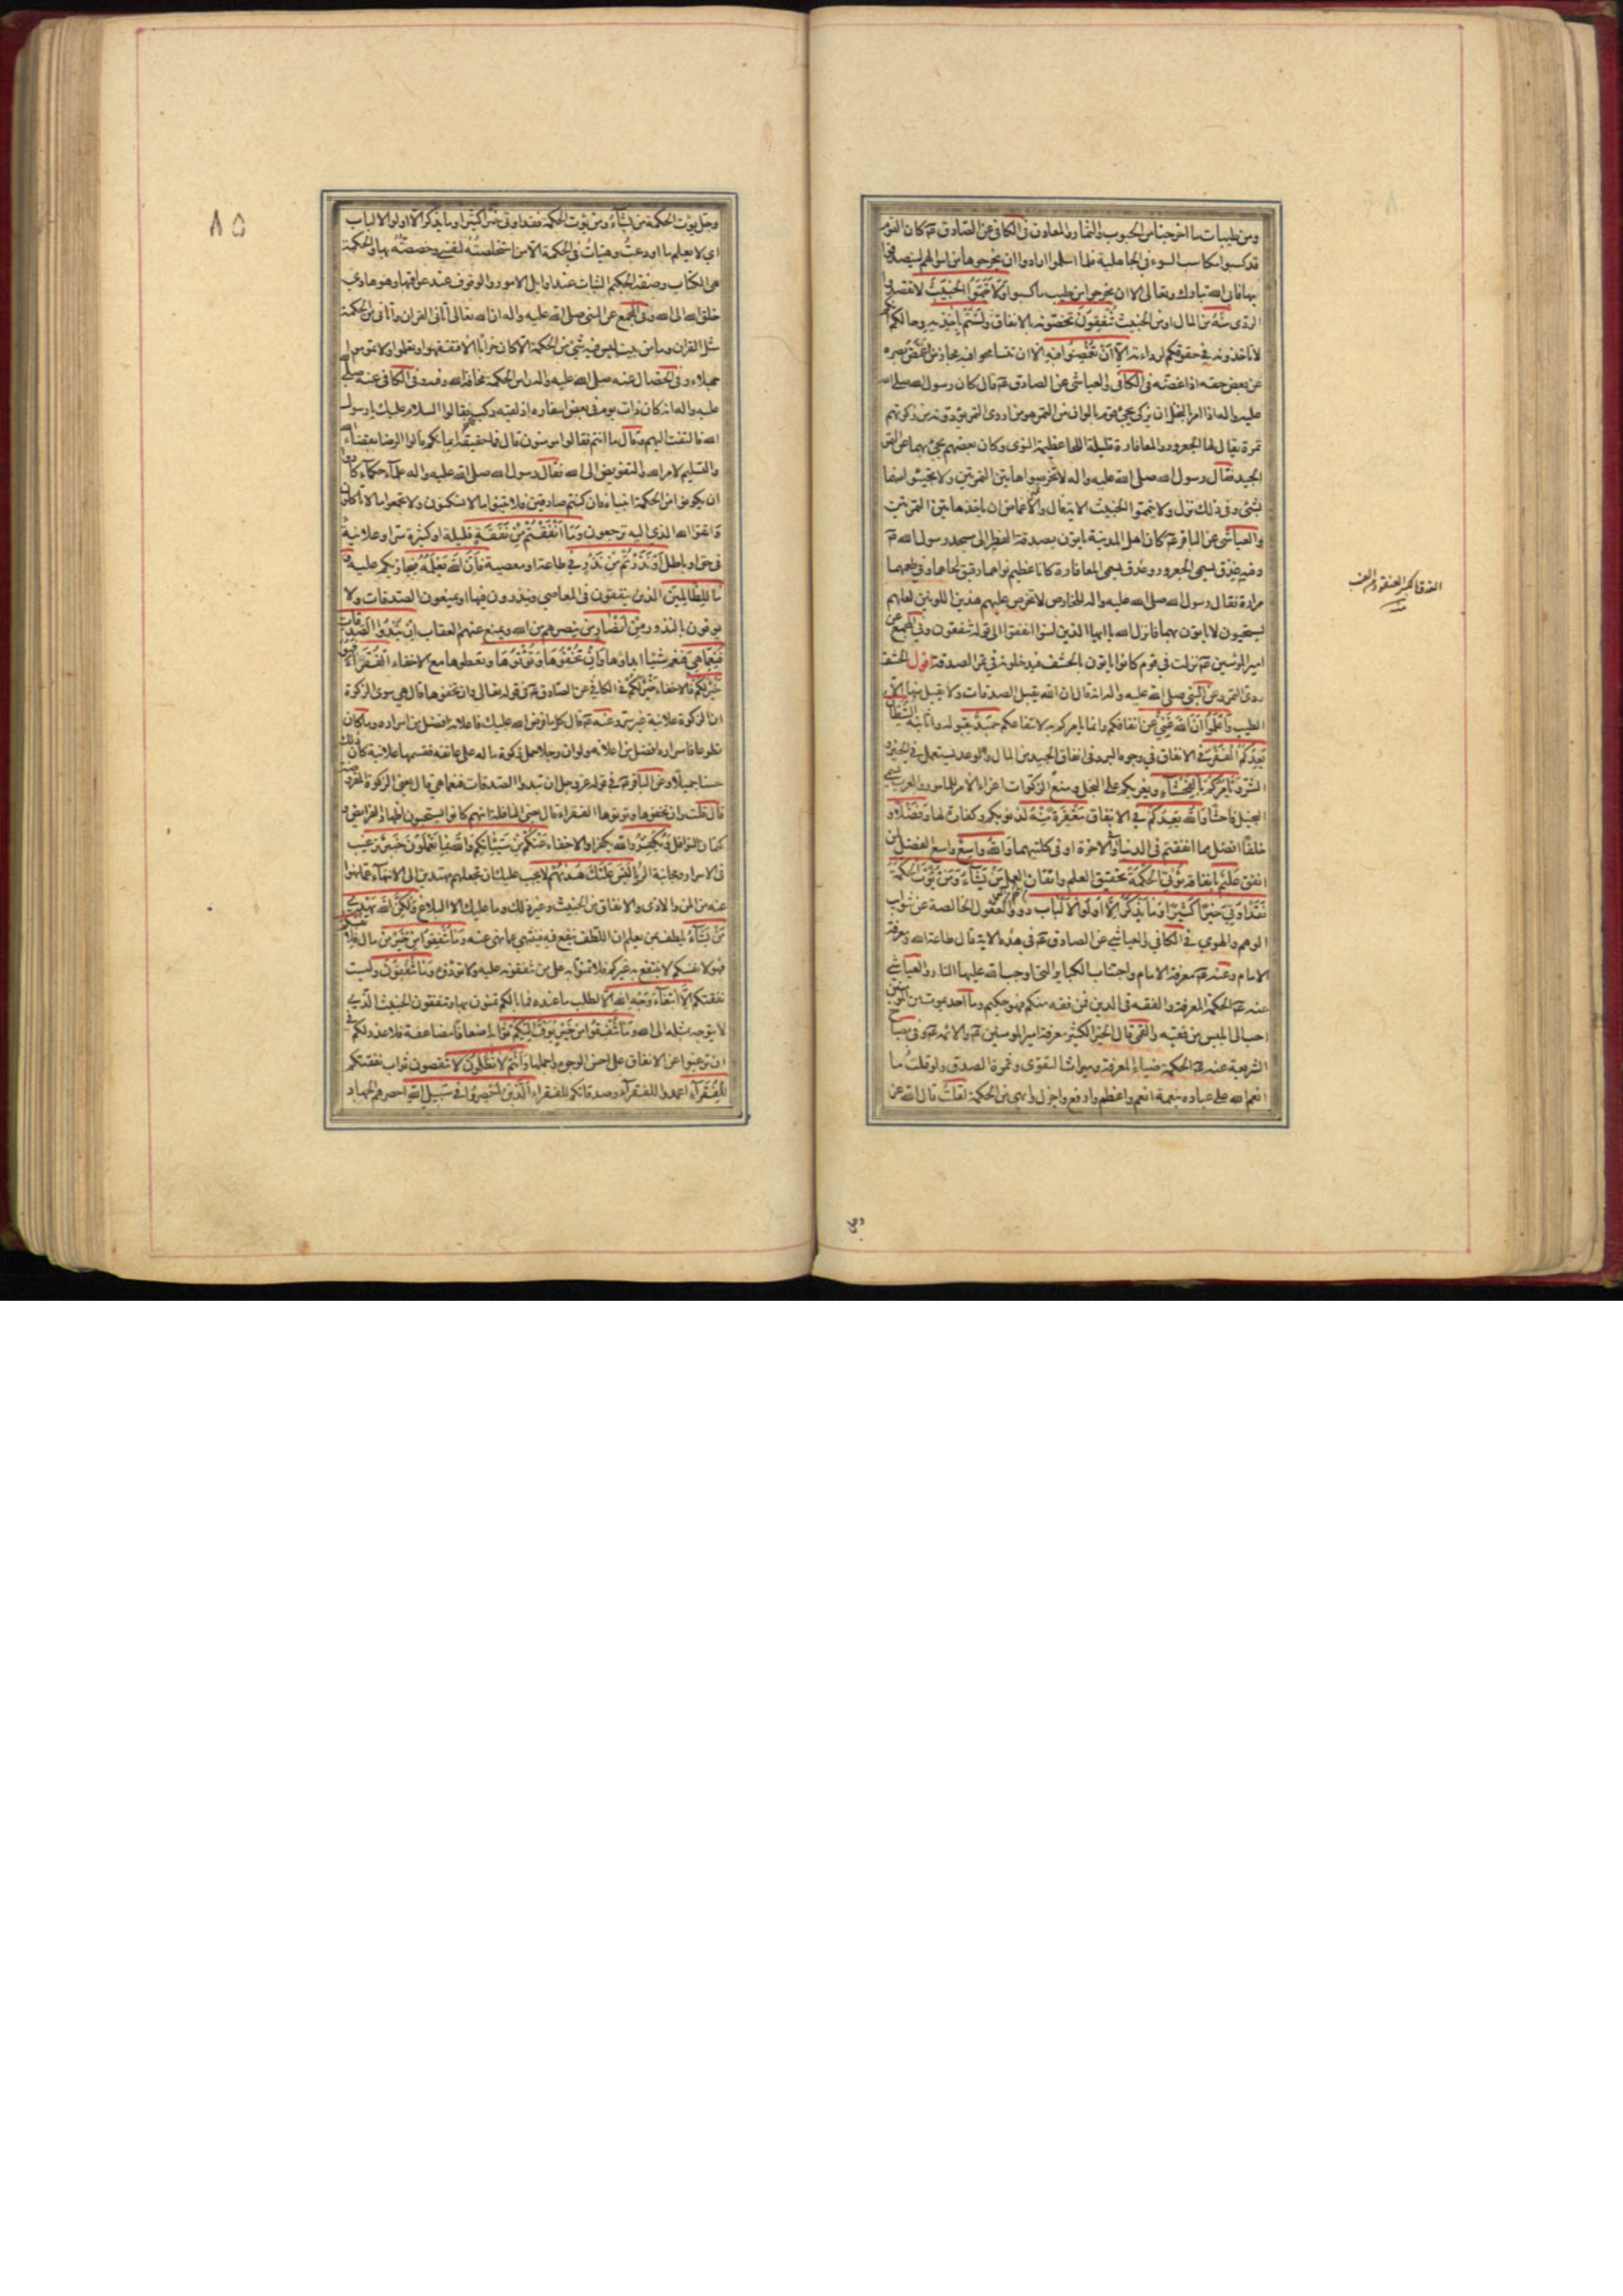 ومن طيبات ما اخرجنا من الحبوب والثمار والمعادن في الكافي عن الصادق عم كان القوم
قد كسبوا مكاسب السوء في الجاهلية فلما اسلموا ارادوا ان يخرجوها من اموالهم ليتصدقوا
بها فابى الله تبارك وتعالى الا ان يخرجوا من طيب ما كسبوا وَلَا تَيَمَّمُوا الْخَبِيثَ لا تقصدوا
الردى مِنْهُ من المال او من الخبيث تُنْفِقُونَ تخصونه بالانفاق وَلَسْتُمْ بِآخِذِيهِ وحالكم انكم
لا تاخذونه في حقوقكم لرداءته اِلَّا اَنْ تُغْمِضُوا فِيهِ الا ان تتسامحوا فيه مجاز من اغمض بصره
عن بعض حقه اذا غضه في الكافي والعياشي عن الصادق عم قال كان رسول الله صلى الله
عليه واله اذا امر بالنخل ان يزكى يجئ قوم بالوان من التمر هو من اردى التمر يؤدونه من زكوتهم
تمرة يقال لها الجعرور والمعافارة قليلة اللحا عظيمة النوى وكان بعضهم يجئ بهما عن التمر
الجيد فقال رسول الله صلى الله عليه واله لا تخرصوا هاتين التمرتين ولا تجيئوا منها
بشئ وفي ذلك نزل ولا تيمموا الخبيث الاية قال والاغماض ان ياخذ هاتين التمرتين
والعياشي عن الباقر عم كان اهل المدينة ياتون بصدقة الفطر الى مسجد رسول الله ص
وفيه عذق يسمى الجعرور وعذق يسمى المعافارة كانا عظيم نواهما رقيق لحاهما وفي طعمهما
مرارة فقال رسول الله صلى الله عليه واله للخارص لا تخرص عليهم هذين اللونين لعلهم
يستحيون لا ياتون بهما فانزل الله يا ايها الذين امنوا انفقوا الى قوله تنفقون وفي المجمع عن
امير المؤمنين عم نزلت في قوم كانوا ياتون بالحشف فيدخلونه في تمر الصدقة اقول الحشف
ردى التمر وعن النبي صلى الله عليه واله انه قال ان الله يقبل الصدقات ولا يقبل منها الا
الطيب وَاعْلَمُوا اَنَّ اللهَ غَنِيٌّ عن انفاقكم وانما يامركم به لانتفاعكم حَمِيدٌ بقبوله واثابته الشَّيْطَانُ
يَعِدُكُمُ الْفَقْرَ في الانفاق في وجوه البر وفي انفاق الجيد من المال والوعد يستعمل في الخير و
الشر وَيَاْمُرُكُمْ بِالْفَحْشَاءِ ويغريكم على البخل ومنع الزكوات اغراء الامر للمامور والعرب يسمى
البخيل فاحشا وَاللهُ يَعِدُكُمْ في الانفاق مَغْفِرَةً مِنْهُ لذنوبكم وكفارة لها وَفَضْلًا و
خلفا افضل مما انفقتم في الدنيا او الاخرة او في كلتيهما وَاللهُ وَاسِعٌ واسع الفضل لمن
انفق عَلِيمٌ بانفاقه يُؤْتِي الْحِكْمَةَ تحقيق العلم واتقان العمل مَنْ يَشَاءُ وَمَنْ يُؤْتَ الْحِكْمَةَ
فَقَدْ اُوتِيَ خَيْرًا كَثِيرًا وَمَا يَذَّكَّرُ اِلَّا اُولُو الْاَلْبَابِ ذوو العقول الخالصة عن شوايب
الوهم والهوى في الكافي والعياشي عن الصادق عم في هذه الاية قال طاعة الله ومعرفة
الامام وعنه عم معرفة الامام واجتناب الكباير التي اوجب الله عليها النار والعياشي
عنه عم الحكمة المعرفة والفقه في الدين فمن فقه منكم فهو حكيم وما احد يموت من المؤمنين
احب الى ابليس من فقيه والقمي قال الخير الكثير معرفة امير المؤمنين عم والائمة عم وفي مصباح
الشريعة عنه عم الحكمة ضياء المعرفة وميراث التقوى وثمرة الصدق ولو قلت ما
انعم الله على عباده بنعمة انعم واعظم وارفع واجزل وابهى من الحكمة لقلت قال الله عز
العذق بالكسر العنقود من العنب
وجل يؤت الحكمة من يشاء ومن يؤت الحكمة فقد اوتي خيرا كثيرا وما يذكر الا اولو الالباب
اي لا يعلم ما اودعتُ وهيّاتُ في الحكمة الا من استخلصتُه لنفسي وخصصتُه بها والحكمة
هي الكتاب وصفة الحكيم الثبات عند اوايل الامور والوقوف عند عواقبها وهو هادي
خلق الله الى الله وفي المجمع عن النبي صلى الله عليه واله ان الله تعالى اتاني القران واتاني من الحكمة
مثل القران وما من بيت ليس فيه شئ من الحكمة الا كان خرابا الا فتفقهوا وتعلموا ولا تموتوا
جهلاء وفي الخصال عنه صلى الله عليه واله راس الحكمة مخافة الله وفيه وفي الكافي عنه صلى الله
عليه واله انه كان ذات يوم في بعض اسفاره اذ لقيه ركب فقالوا السلام عليك يا رسول
الله فالتفت اليهم وقال ما انتم فقالوا مؤمنون قال فما حقيقة ايمانكم قالوا الرضا بقضاء الله
والتسليم لامر الله والتفويض الى الله فقال رسول الله صلى الله عليه واله علماء حكماء كادوا
ان يكونوا من الحكمة انبياء فان كنتم صادقين فلا تبنوا ما لا تسكنون ولا تجمعوا ما لا تاكلون
واتقوا الله الذي اليه ترجعون وَمَا اَنْفَقْتُمْ مِنْ نَفَقَةٍ قليلة او كثيرة سرا وعلانية
في حق او باطل اَوْ نَذَرْتُمْ مِنْ نَذْرٍ في طاعة او معصية فَاِنَّ اللهَ يَعْلَمُهُ فيجازيكم عليه وَ
مَا لِلظَّالِمِينَ الذين ينفقون في المعاصي وينذرون فيها او يمنعون الصدقات ولا
يوفون بالنذور مِنْ اَنْصَارٍ من ينصرهم من الله ويمنع عنهم العقاب اِنْ تُبْدُوا الصَّدَقَاتِ
فَنِعِمَّا هِيَ فنعم شيئا ابداؤها وَاِنْ تُخْفُوهَا وَتُؤْتُوهَا وتعطوها مع الاخفاء الْفُقَرَاءَ فَهُوَ
خَيْرٌ لَكُمْ فالاخفاء خير لكم في الكافي عن الصادق عم في قوله تعالى وان تخفوها قال هي سوى الزكوة
ان الزكوة علانية غير سر وعنه عم قال كل ما فرض الله عليك فاعلانه افضل من اسراره وما كان
تطوعا فاسراره افضل من اعلانه ولو ان رجلا حمل زكوة ماله على عاتقه فقسمها علانية كان ذلك
حسنا جميلا وعن الباقر عم في قوله عز وجل ان تبدوا الصدقات فنعما هي قال يعني الزكوة المفروضة
قال قلت وان تخفوها وتؤتوها الفقراء قال يعني النافلة انهم كانوا يستحبون اظهار الفرايض و
كتمان النوافل وَيُكَفِّرُ والله يكفر او الاخفاء عَنْكُمْ مِنْ سَيِّئَاتِكُمْ وَاللهُ بِمَا تَعْمَلُونَ خَبِيرٌ ترغيب
في الاسرار ومجانبة الرياء لَيْسَ عَلَيْكَ هُدٰيهُمْ لا يجب عليك ان تجعلهم مهتدين الى الانتهاء عما نهوا
عنه من المن والاذى والانفاق من الخبيث وغير ذلك وما عليك الا البلاغ وَلٰكِنَّ اللهَ يَهْدِي
مَنْ يَشَاءُ يلطف بمن يعلم ان اللطف ينفع فيه فينتهي عما نهي عنه وَمَا تُنْفِقُوا مِنْ خَيْرٍ من مال فَلِاَنْفُسِكُمْ
فهو لانفسكم لا ينتفع به غيركم فلا تمنوا به على من تنفقونه عليه ولا تؤذوه وَمَا تُنْفِقُونَ وليست
نفقتكم اِلَّا ابْتِغَاءَ وَجْهِ اللهِ الا لطلب ما عنده فما بالكم تمنون بها وتنفقون الخبيث الذي
لا يتوجه بمثله الى الله وَمَا تُنْفِقُوا مِنْ خَيْرٍ يُوَفَّ اِلَيْكُمْ ثوابه اضعافا مضاعفة فلا عذر لكم في
ان ترغبوا عن الانفاق على احسن الوجوه واجملها وَاَنْتُمْ لَا تُظْلَمُونَ لا تنقصون ثواب نفقتكم
لِلْفُقَرَاءِ اعمدوا للفقراء او صدقاتكم للفقراء الَّذِينَ اُحْصِرُوا فِي سَبِيلِ اللهِ احصرهم الجهاد
٨٥